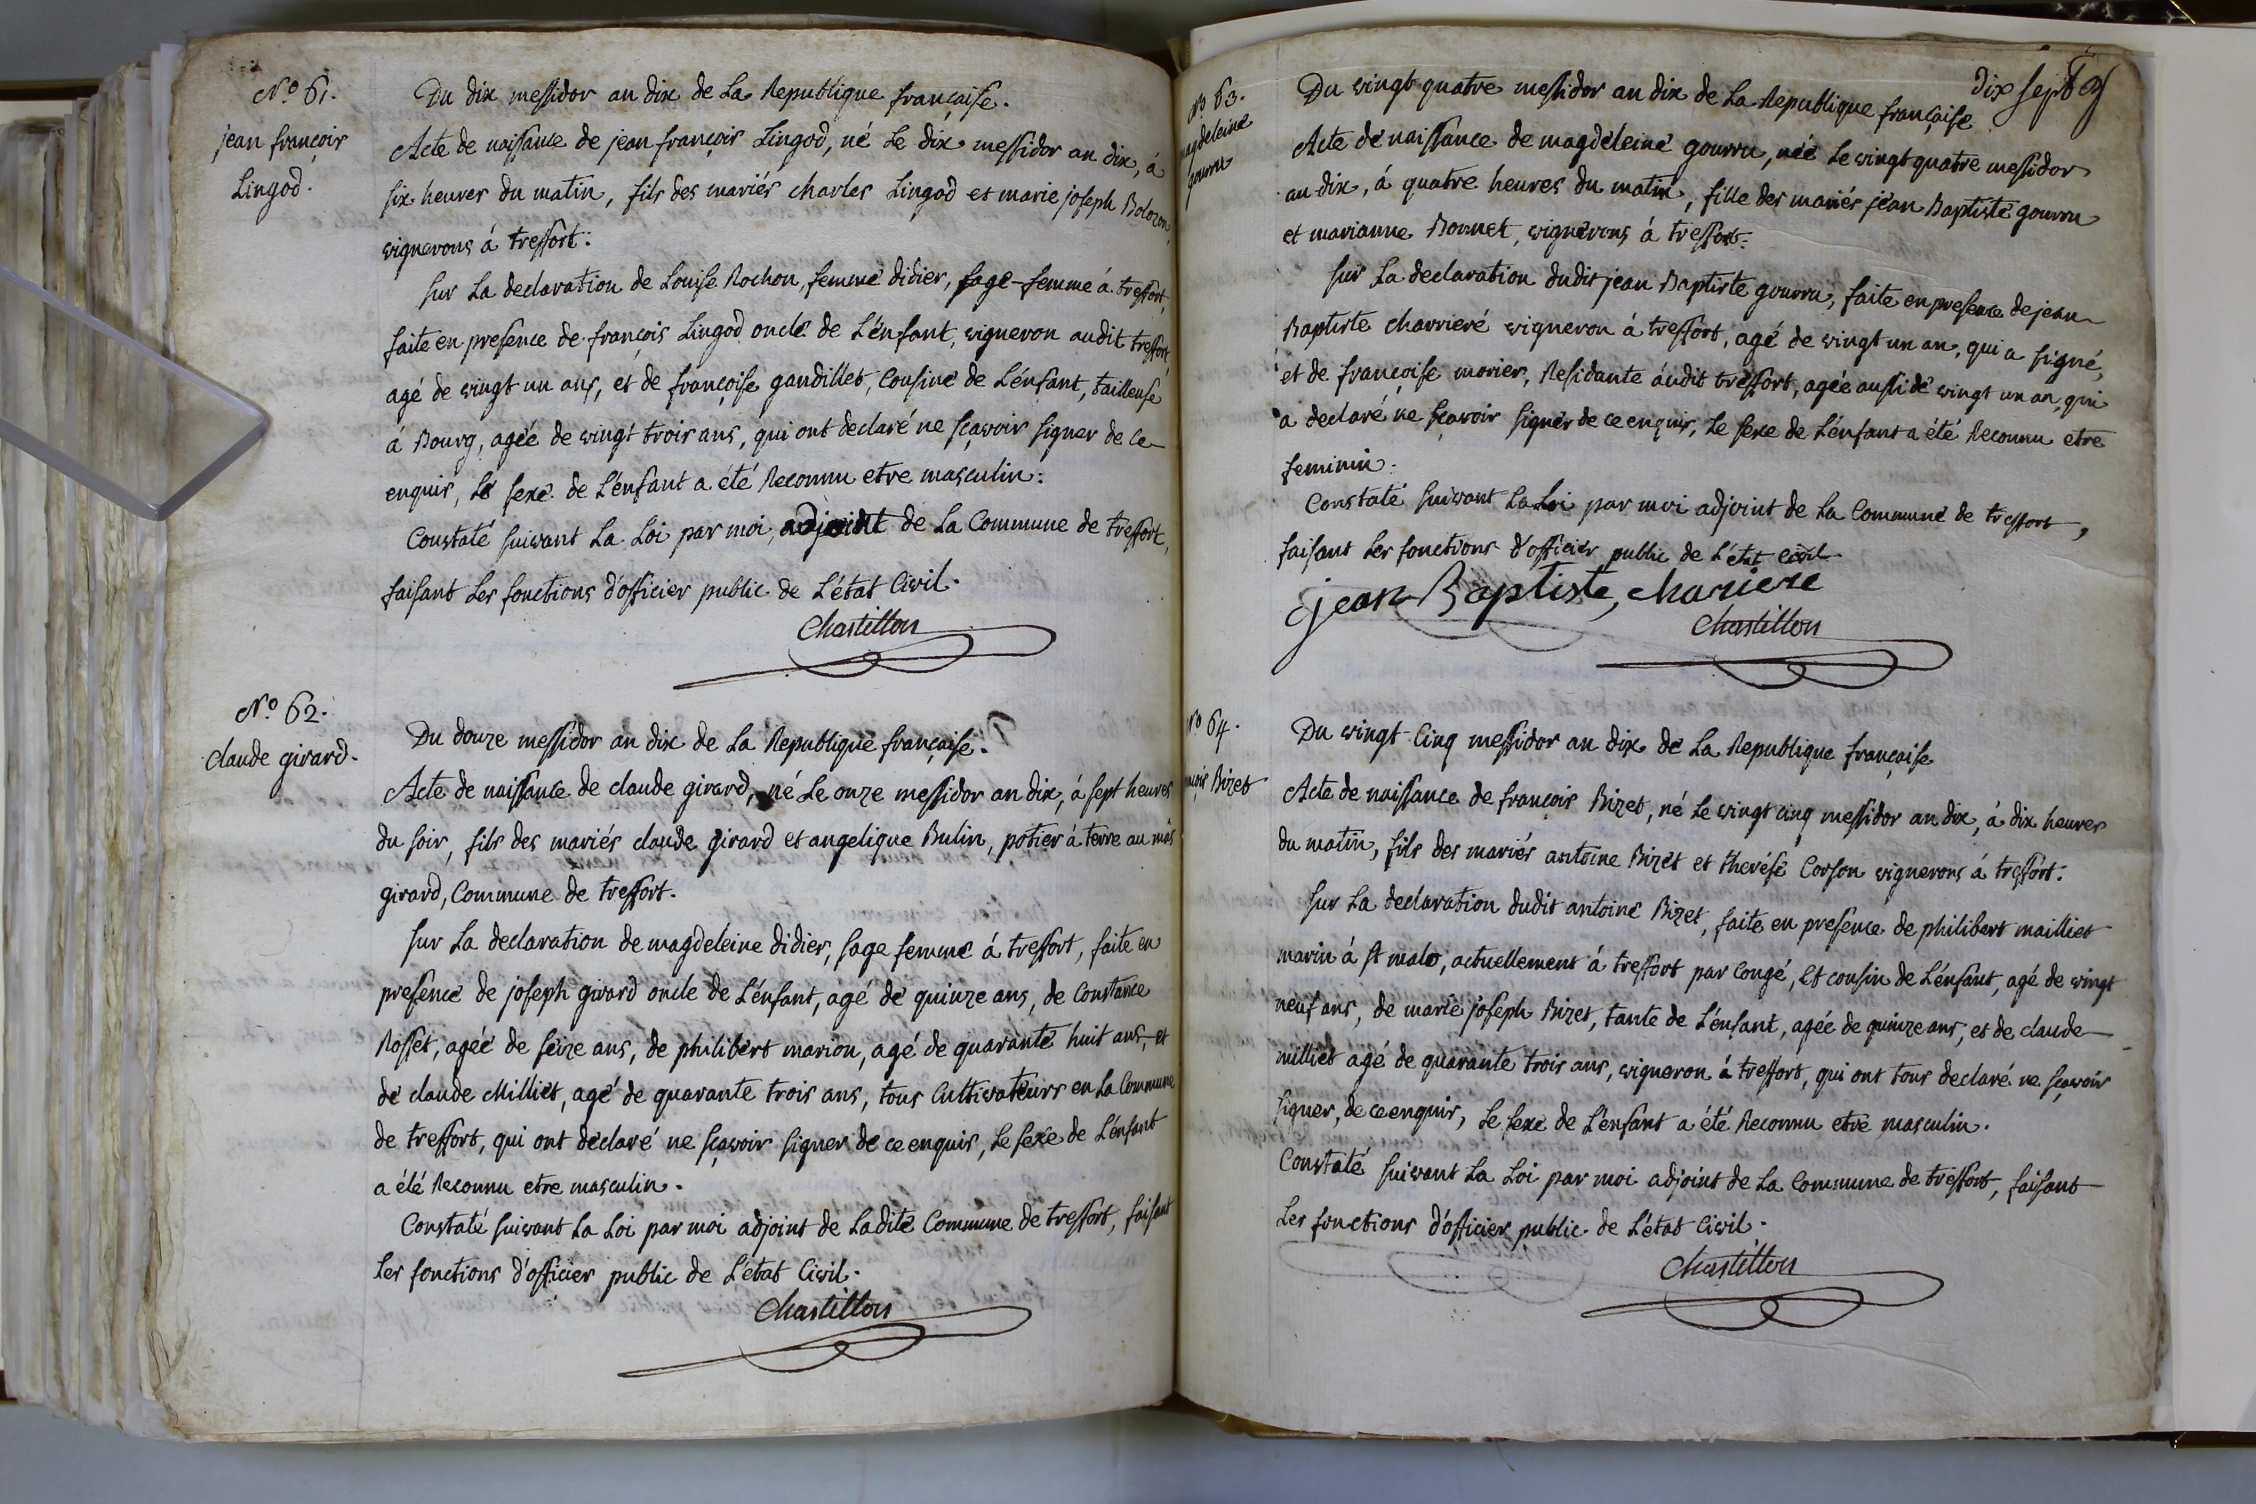 N.o 61.
jean françois
Lingod.
Du dix messidor an dix de La Republique française.
Acte de naissance de jean françois Lingod, né Le dix messidor an dix, á
six heures du matin, fils des mariés charles Lingod et marie joseph Bolozon,
vignerons á treffort:
sur La declaration de Louise Rochon, femme didier, sage-femme á treffort,
faite en presence de françois Lingod oncle de L'énfant, vigneron audit treffort,
agé de vingt un ans, et de françoise gandillet, Cousine de L'énfant, tailleuse
á Bourg, agée de vingt trois ans, qui ont declaré ne sçavoir signer de ce
enquis, Le sexe de L'énfant a été Reconnu etre masculin:
Constaté suivant La Loi par moi, adjoint de La Commune de treffort,
faisant Les fonctions d'officier public de L'état Civil.
Chastillon
N.o 62.
claude girard.
Du douze messidor an dix de La Republique française.
Acte de naissance de claude girard, né Le onze messidor an dix, á sept heures
du soir, fils des mariés claude girard et angelique Bulin, potier á terre au mas
girard, Commune de treffort.
sur La declaration de magdeleine didier, sage femme á treffort, faite en
presence de joseph girard oncle de L'énfant, agé de quinze ans, de Constance
Rosset, agée de seize ans, de philibert marion, agé de quarante huit ans, et
de claude Milliet, agé de quarante trois ans, tous Cultivateurs en La Commune
de treffort, qui ont declaré ne sçavoir signer de ce enquis, Le sexe de L'énfant
a été Reconnu etre masculin.
Constaté suivant La Loi par moi adjoint de Ladite Commune de treffort, faisant
Les fonctions d'officier public de L'état Civil.
Chastillon
dix sept
N.o 63.
magdeleine
gourru
Du vingt quatre messidor an dix de La Republique française
Acte de naissance de magdeleine gourru, née Le vingt quatre messidor
an dix, á quatre heures du matin, fille des mariés jean Baptiste gourru
et marianne Bonnet, vignerons á treffort:
sur La declaration dudit jean Baptiste gourru, faite en presence de jean
Baptiste charrieré vigneron á treffort, agé de vingt un an, qui a signé,
et de françoise morier, Residante audit treffort, agée aussi de vingt un an, qui
a declaré ne sçavoir signer de ce enquis, Le sexe de L'énfant a été Reconnu etre
feminin.
Constaté suivant La Loi par moi adjoint de La Commune de treffort,
faisant Les fonctions d'officier public de L'état Civil
jean Baptiste, chariere
Chastillon
N.o 64.
françois Bizet
Du vingt Cinq messidor an dix de La Republique française
Acte de naissance de françois Bizet, né Le vingt cinq messidor an dix, á dix heures
du matin, fils des mariés antoine Bizet et therése Corson vignerons á treffort:
sur La declaration dudit antoine Bizet, faite en presence de philibert mailliet
marin á st malo, actuellement á treffort par Congé, et cousin de L'énfant, agé de vingt
neuf ans, de marie joseph Bizet, tante de L'énfant, agée de quinze ans, et de claude
milliet agé de quarante trois ans, vigneron á treffort, qui ont tous declaré ne sçavoir
signer, de ce enquis, Le sexe de L'énfant a été Reconnu etre masculin.
Constaté suivant La Loi par moi adjoint de La Commune de treffort, faisant
Les fonctions d'officier public de L'état Civil.
Chastillon